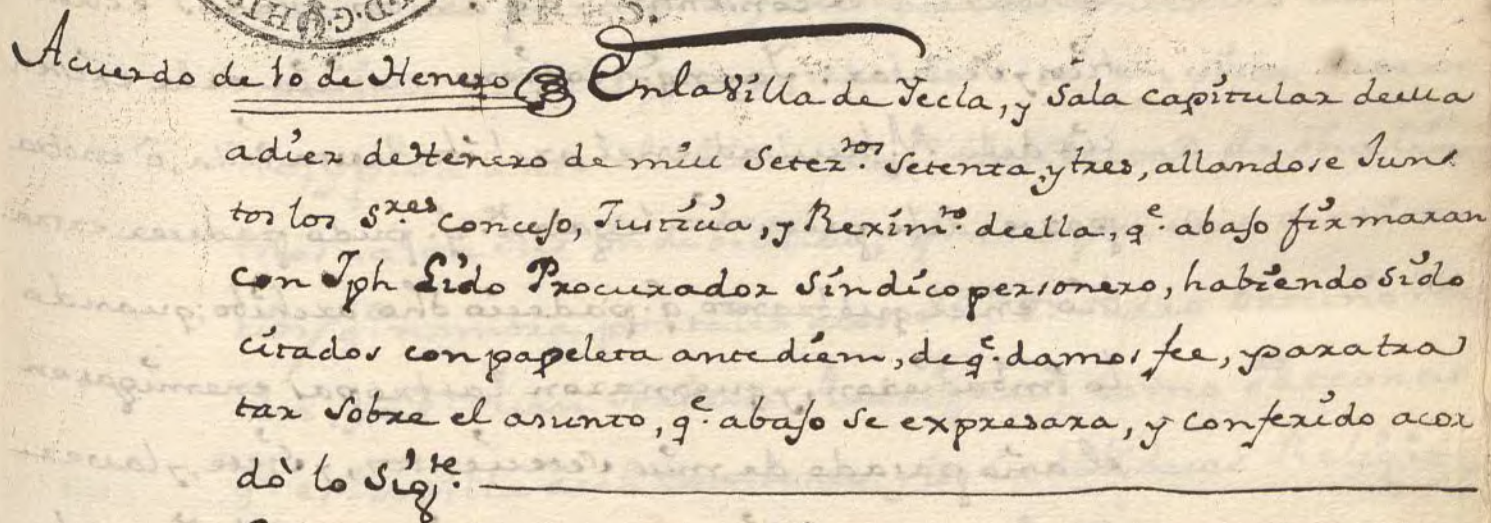 TRES.
Acuerdo de 10 de Henero En la Villa de Yecla, y Sala capitular deella
a diez de Henero de mill Setez.tos Setenta, y tres, allandose Jun
tos los S.res Concejo, Justicia, y Rexim.to deella, q.e abajo firmaran
con Jph Lido Procurador Sindico personero, habiendo Sido
citados con papeleta ante diem, de q.e damos fee, y para tra
tar Sobre el asunto, q.e abajo se expresara, y conferido acor
dò lo Sig.te